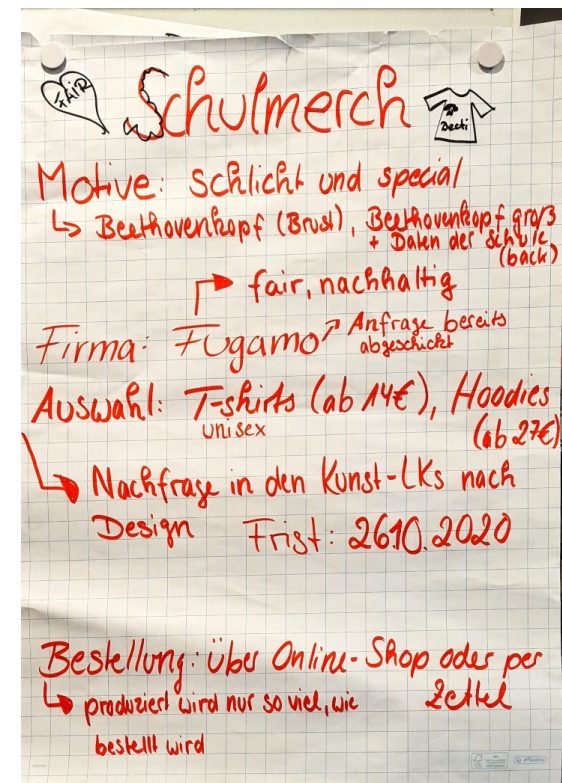 FAIR
Schulmerch
Beeti
Motive: schlicht und special
↳ Beethovenkopf (Brust), Beethovenkopf groß
+ Daten der Schule
(back)
fair, nachhaltig
Firma: Fugamo
Anfrage bereits
abgeschickt
Auswahl: T-shirts (ab 14€), Hoodies
unisex
(ab 27€)
Nachfrage in den Kunst-LKs nach
Design
Frist: 2610.2020
Bestellung: über Online-Shop oder per
Zettel
↳ produziert wird nur so viel, wie
bestellt wird